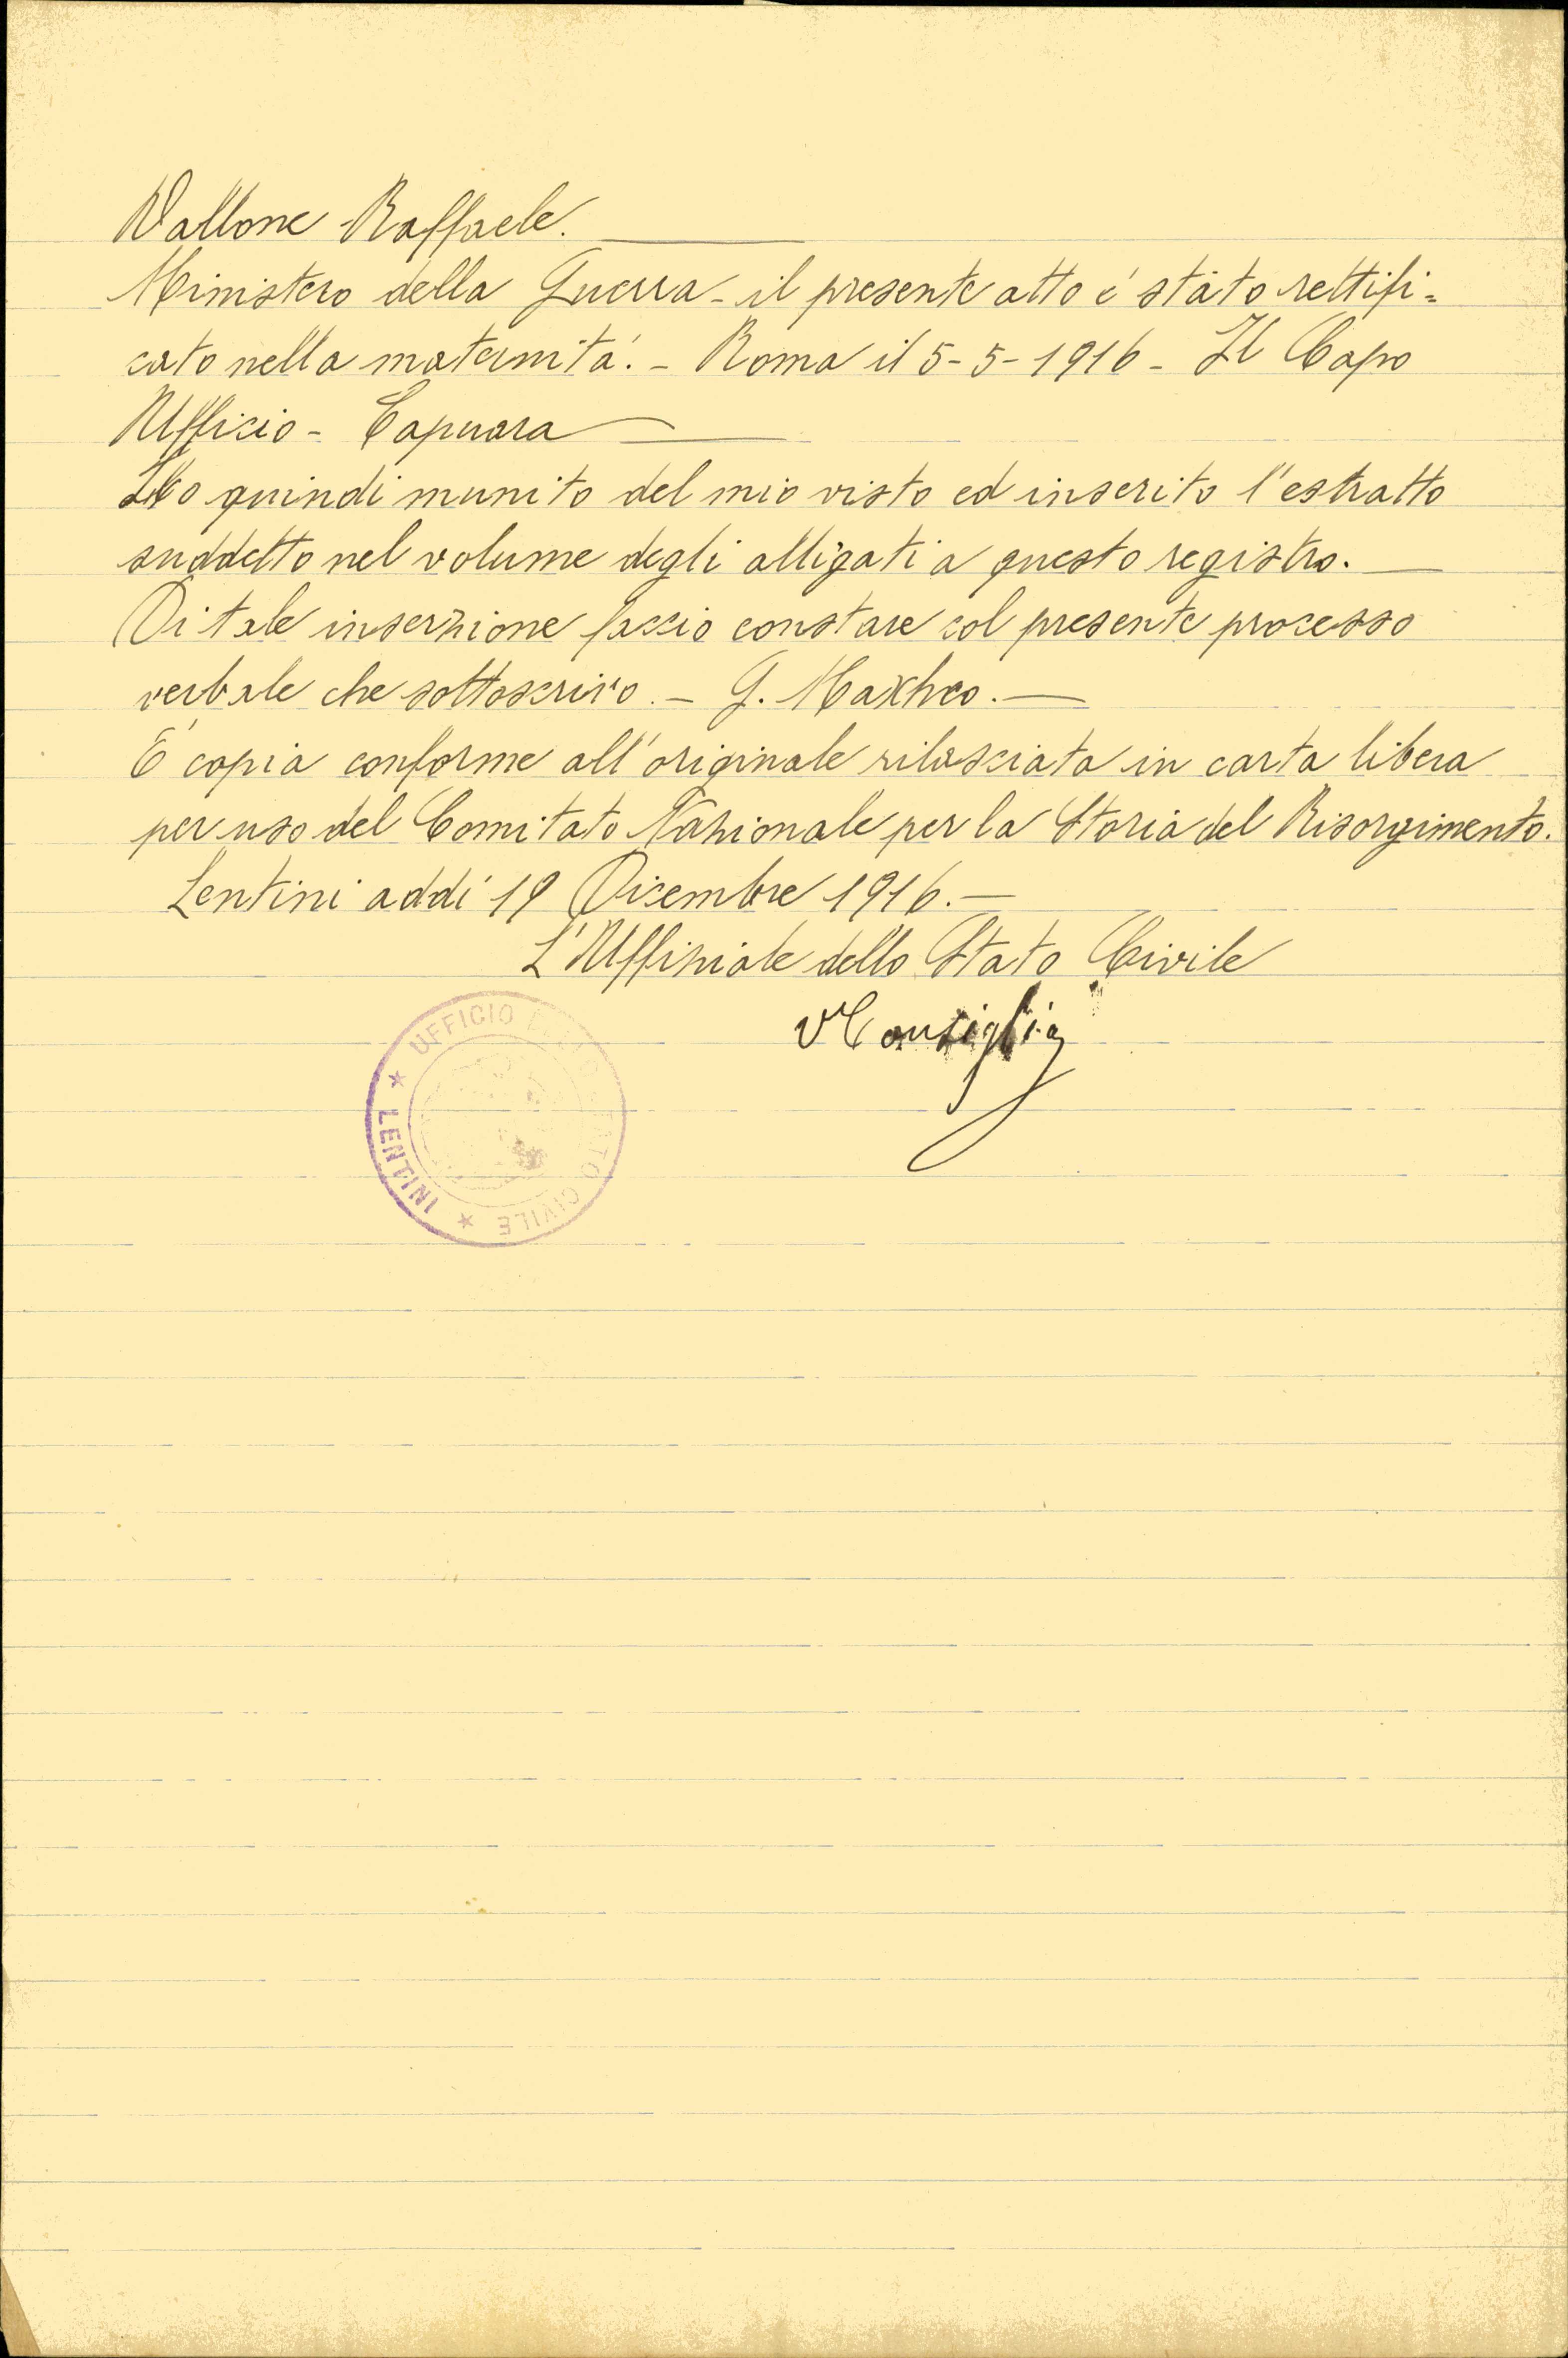 Vallone Raffaele.
Ministero della Guerra - il presente atto é stato rettifi=
cato nella maternitá. - Roma il 5-5-1916 - Il Capo
Ufficio - Capuara
Ho quindi munito del mio visto ed inserito l'estratto
suddetto nel volume degli alligati a questo registro.
Di tale inserzione faccio constare col presente processo
verbale che sottoscrivo. - G.
É copia conforme all'originale rilasciata in carta libera
per uso del Comitato Nazionale per la Storia del Risorgimento.
Lentini addí 19 Dicembre 1916. -
L'Uffiziale dello Stato Civile
V Consiglio
UFFICIO DELLO STATO CIVILE
★ LENTINI ★